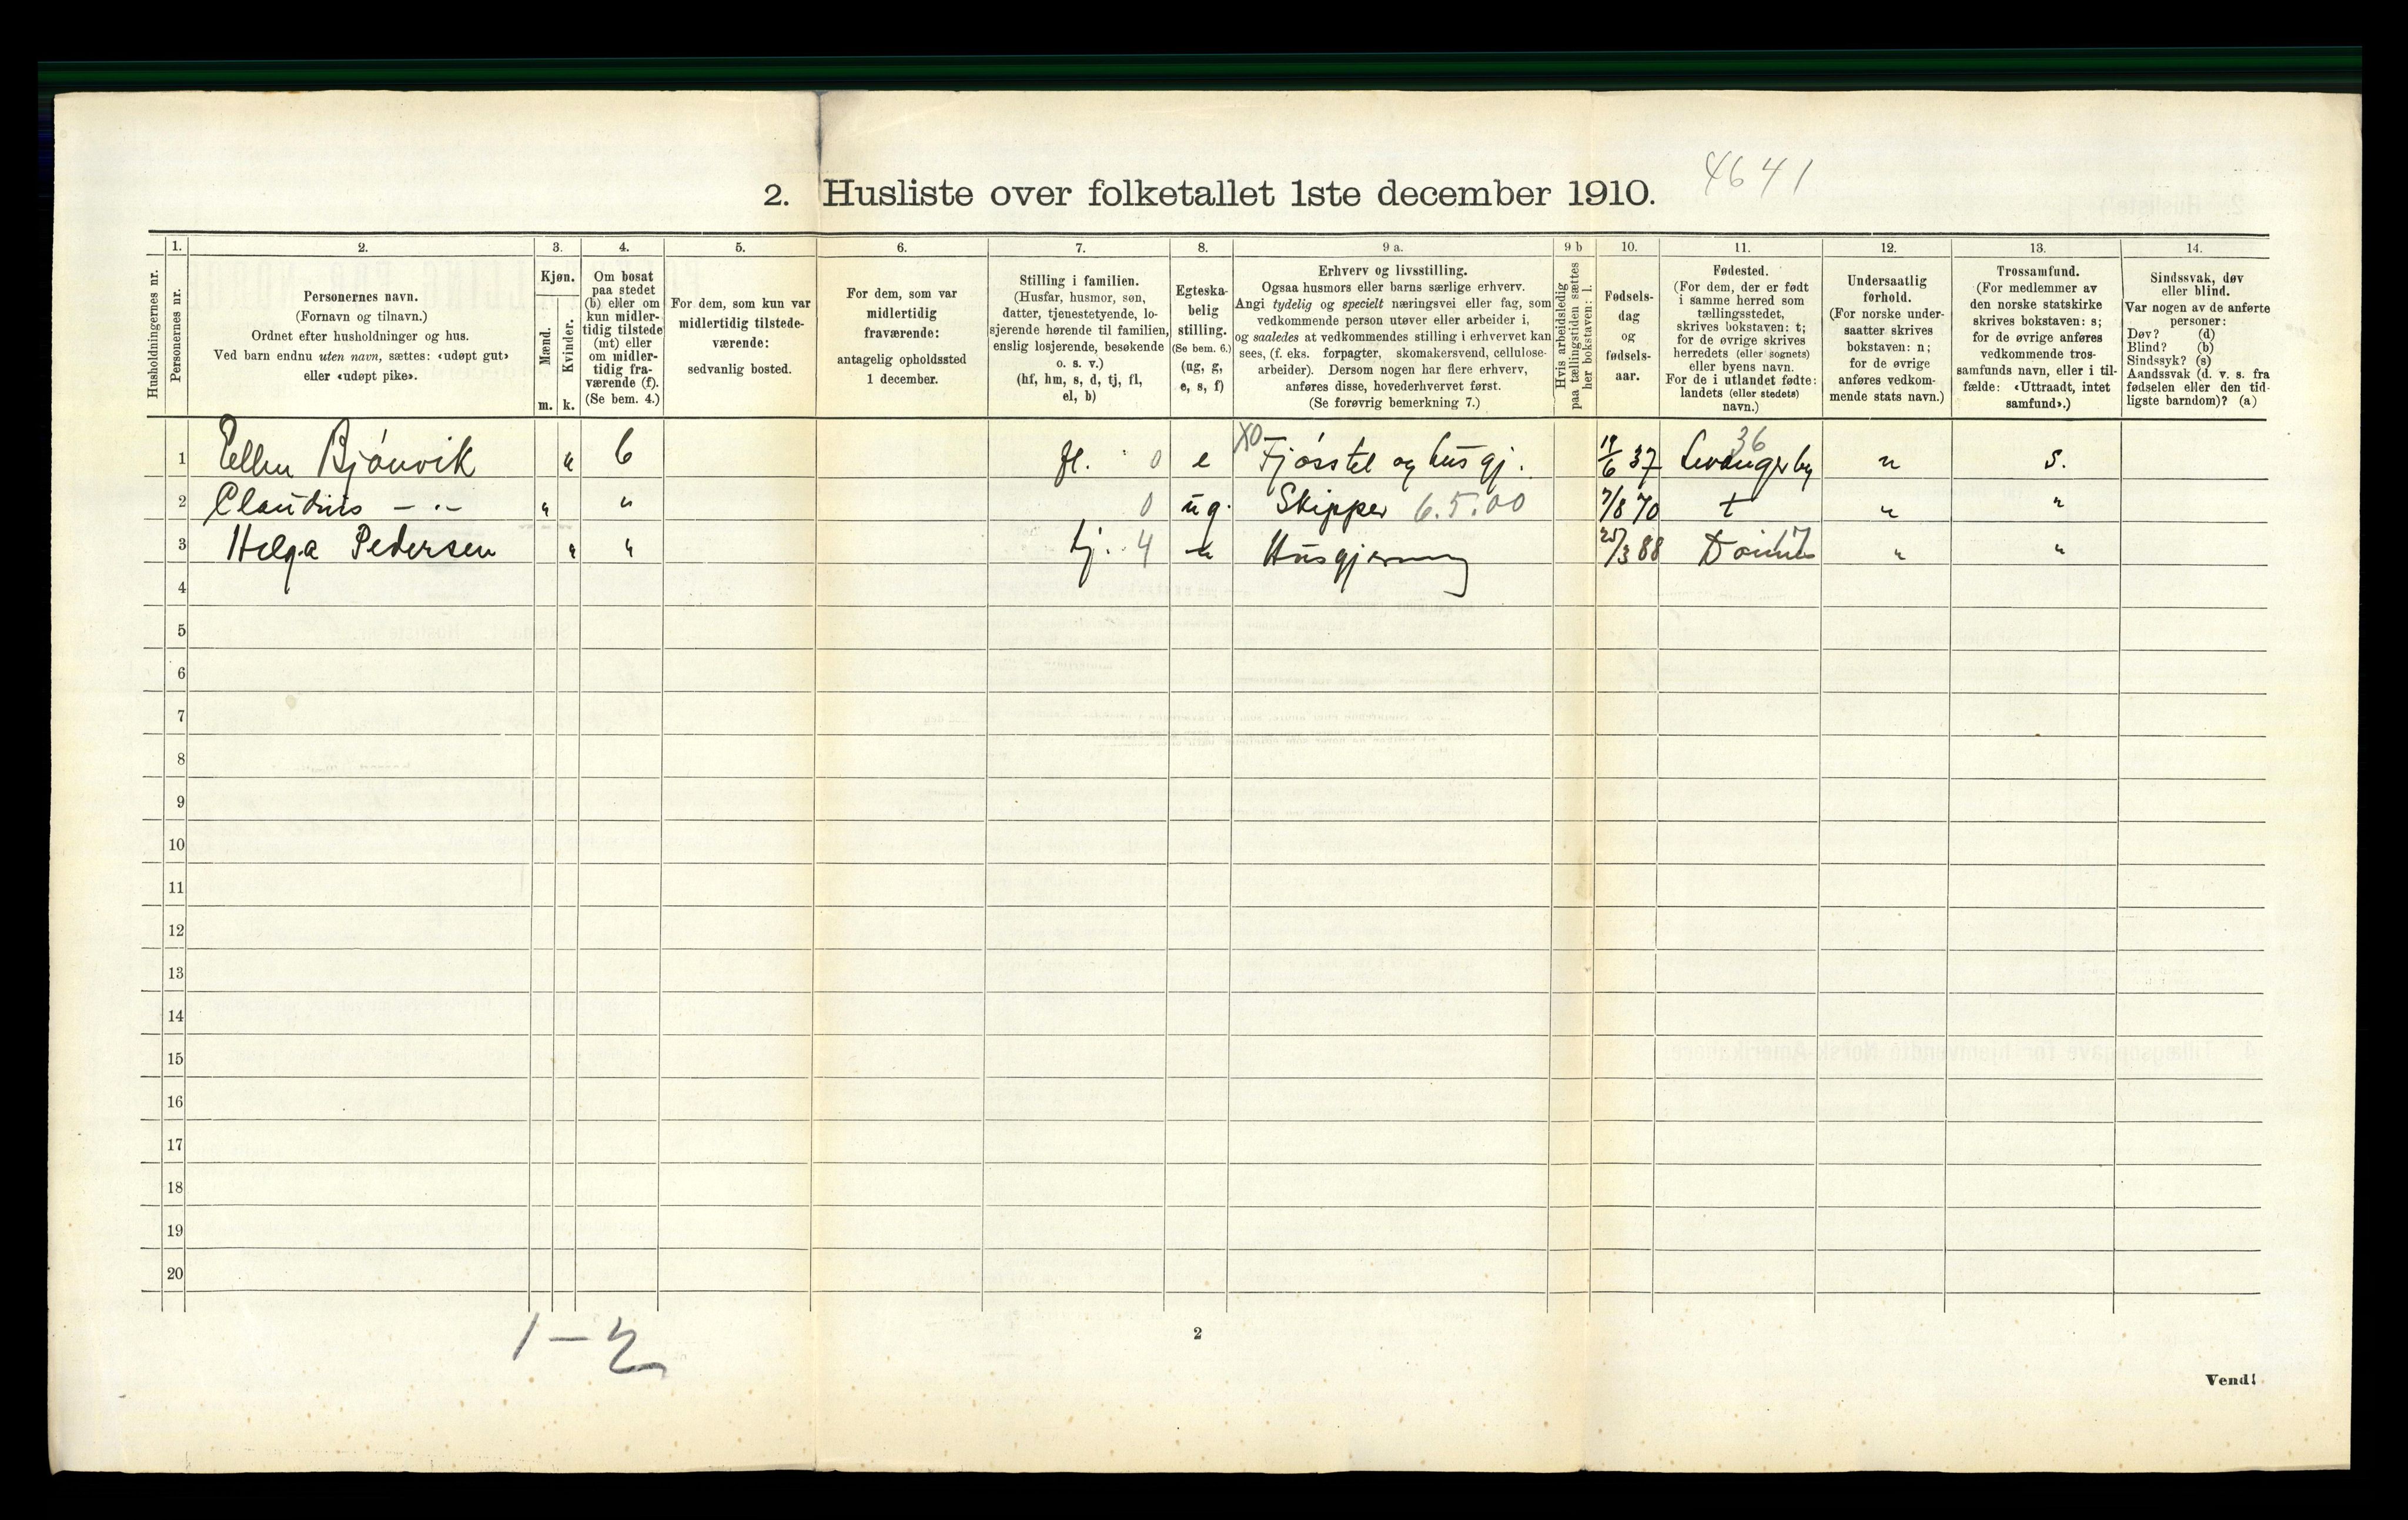 4641
2. Husliste over folketallet 1ste december 1910.
Husholdningernes nr.
1.
Personernes nr.
2.
Personernes navn.
(Fornavn og tilnavn.)
Ordnet efter husholdninger og hus.
Ved barn endnu uten navn, sættes: «udøpt gut»
eller «udøpt pike».
3.
Kjøn.
Mænd.
Kvinder.
m. k.
4.
Om bosat
paa stedet
(b) eller om
kun midler-
tidig tilstede
(mt) eller
om midler-
tidig fra-
værende (f).
(Se bem. 4.)
5.
For dem, som kun var
midlertidig tilstede-
værende:
sedvanlig bosted.
6.
For dem, som var
midlertidig
fraværende:
antagelig opholdssted
1 december.
7.
Stilling i familien.
(Husfar, husmor, søn,
datter, tjenestetyende, lo-
sjerende hørende til familien,
enslig losjerende, besøkende
o. s. v.)
(hf, hm, s, d, tj, fl,
el, b)
8.
Egteska-
belig
stilling.
(Se bem. 6.)
(ug, g,
e, s, f)
9 a.
Erhverv og livsstilling.
Ogsaa husmors eller barns særlige erhverv.
Angi tydelig og specielt næringsvei eller fag, som
vedkommende person utøver eller arbeider i,
og saaledes at vedkommendes stilling i erhvervet kan
sees, (f. eks. forpagter, skomakersvend, cellulose-
arbeider). Dersom nogen har flere erhverv,
anføres disse, hovederhvervet først.
(Se forøvrig bemerkning 7.)
9 b
Hvis arbeidsledig
paa tællingstiden sættes
her bokstaven: l.
10.
Fødsels-
dag
og
fødsels-
aar.
11.
Fødested.
(For dem, der er født
i samme herred som
tællingsstedet,
skrives bokstaven: t;
for de øvrige skrives
herredets (eller sognets)
eller byens navn.
For de i utlandet fødte:
landets (eller stedets)
navn.)
12.
Undersaatlig
forhold.
(For norske under-
saatter skrives
bokstaven: n;
for de øvrige
anføres vedkom-
mende stats navn.)
13.
Trossamfund.
(For medlemmer av
den norske statskirke
skrives bokstaven: s;
for de øvrige anføres
vedkommende tros-
samfunds navn, eller i til-
fælde: «Uttraadt, intet
samfund».)
14.
Sindssvak, døv
eller blind.
Var nogen av de anførte
personer:
Døv? (d)
Blind? (b)
Sindssyk? (s)
Aandssvak (d. v. s. fra
fødselen eller den tid-
ligste barndom)? (a)
1 Ellen Bjønvik " b fl. 0 e X0 Fjøsstel og husgj. 19/6 37 36 Levanger by n s.
2 Claudius — " — " " 0 ug. Skipper 6.5.00 7/8 70 t " "
3 Helga Pedersen " " tj. 4 " Husgjerning 25/3 88 17 " "
4
5
6
7
8
9
10
11
12
13
14
15
16
17
18
19
20
1 – 2
2
Vend!